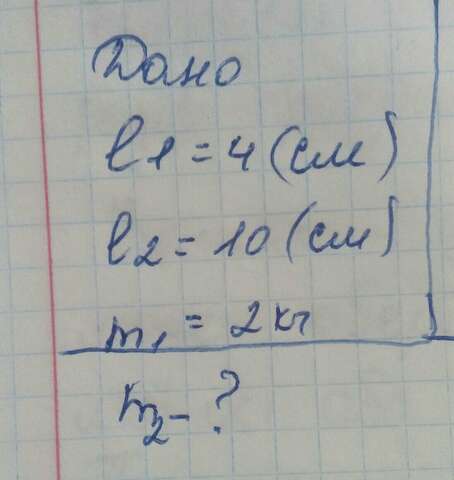 Дано
l1 = 4 (см)
l2 = 10 (см)
m1 = 2 кг
m2 - ?